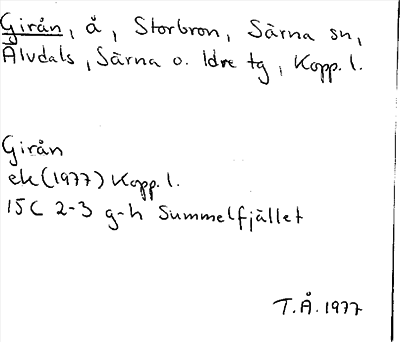 Girån, å, Storbron, Särna sn,
Älvdals, Särna o. Idre tg, Kopp. l.
Girån
ek (1977) Kopp. l.
15C 2-3 g-h Summelfjället
T.Å. 1977